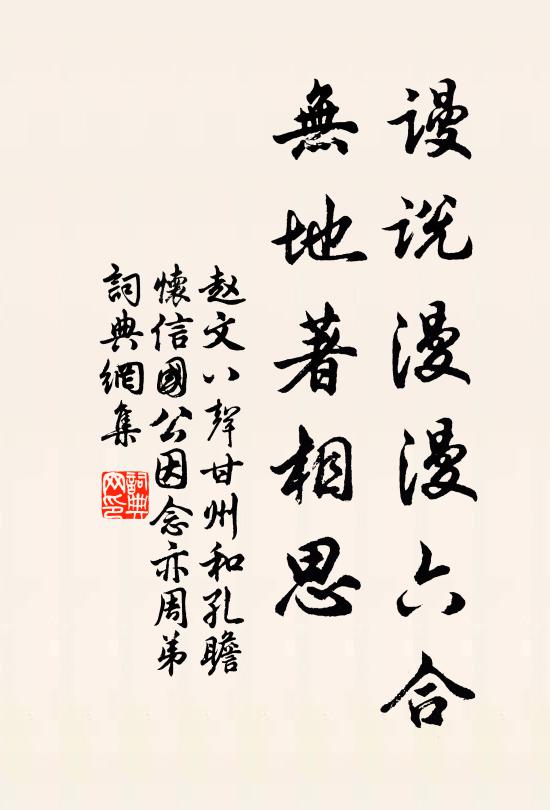 谩说漫漫六合
無地著相思
赵文八聲甘州和孔瞻
懷信國公因念亦周弟
詞典網集
詞典網印